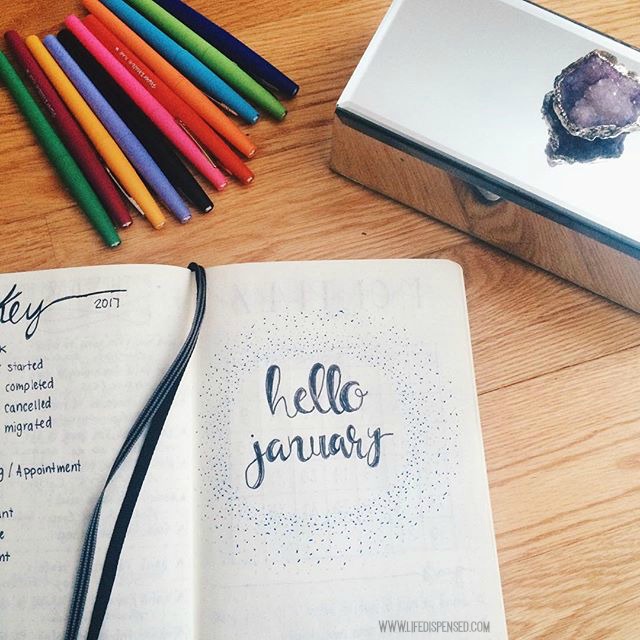 Key
2017
started
completed
cancelled
migrated
/ Appointment
hello
january
WWW.LIFEDISPENSED.COM